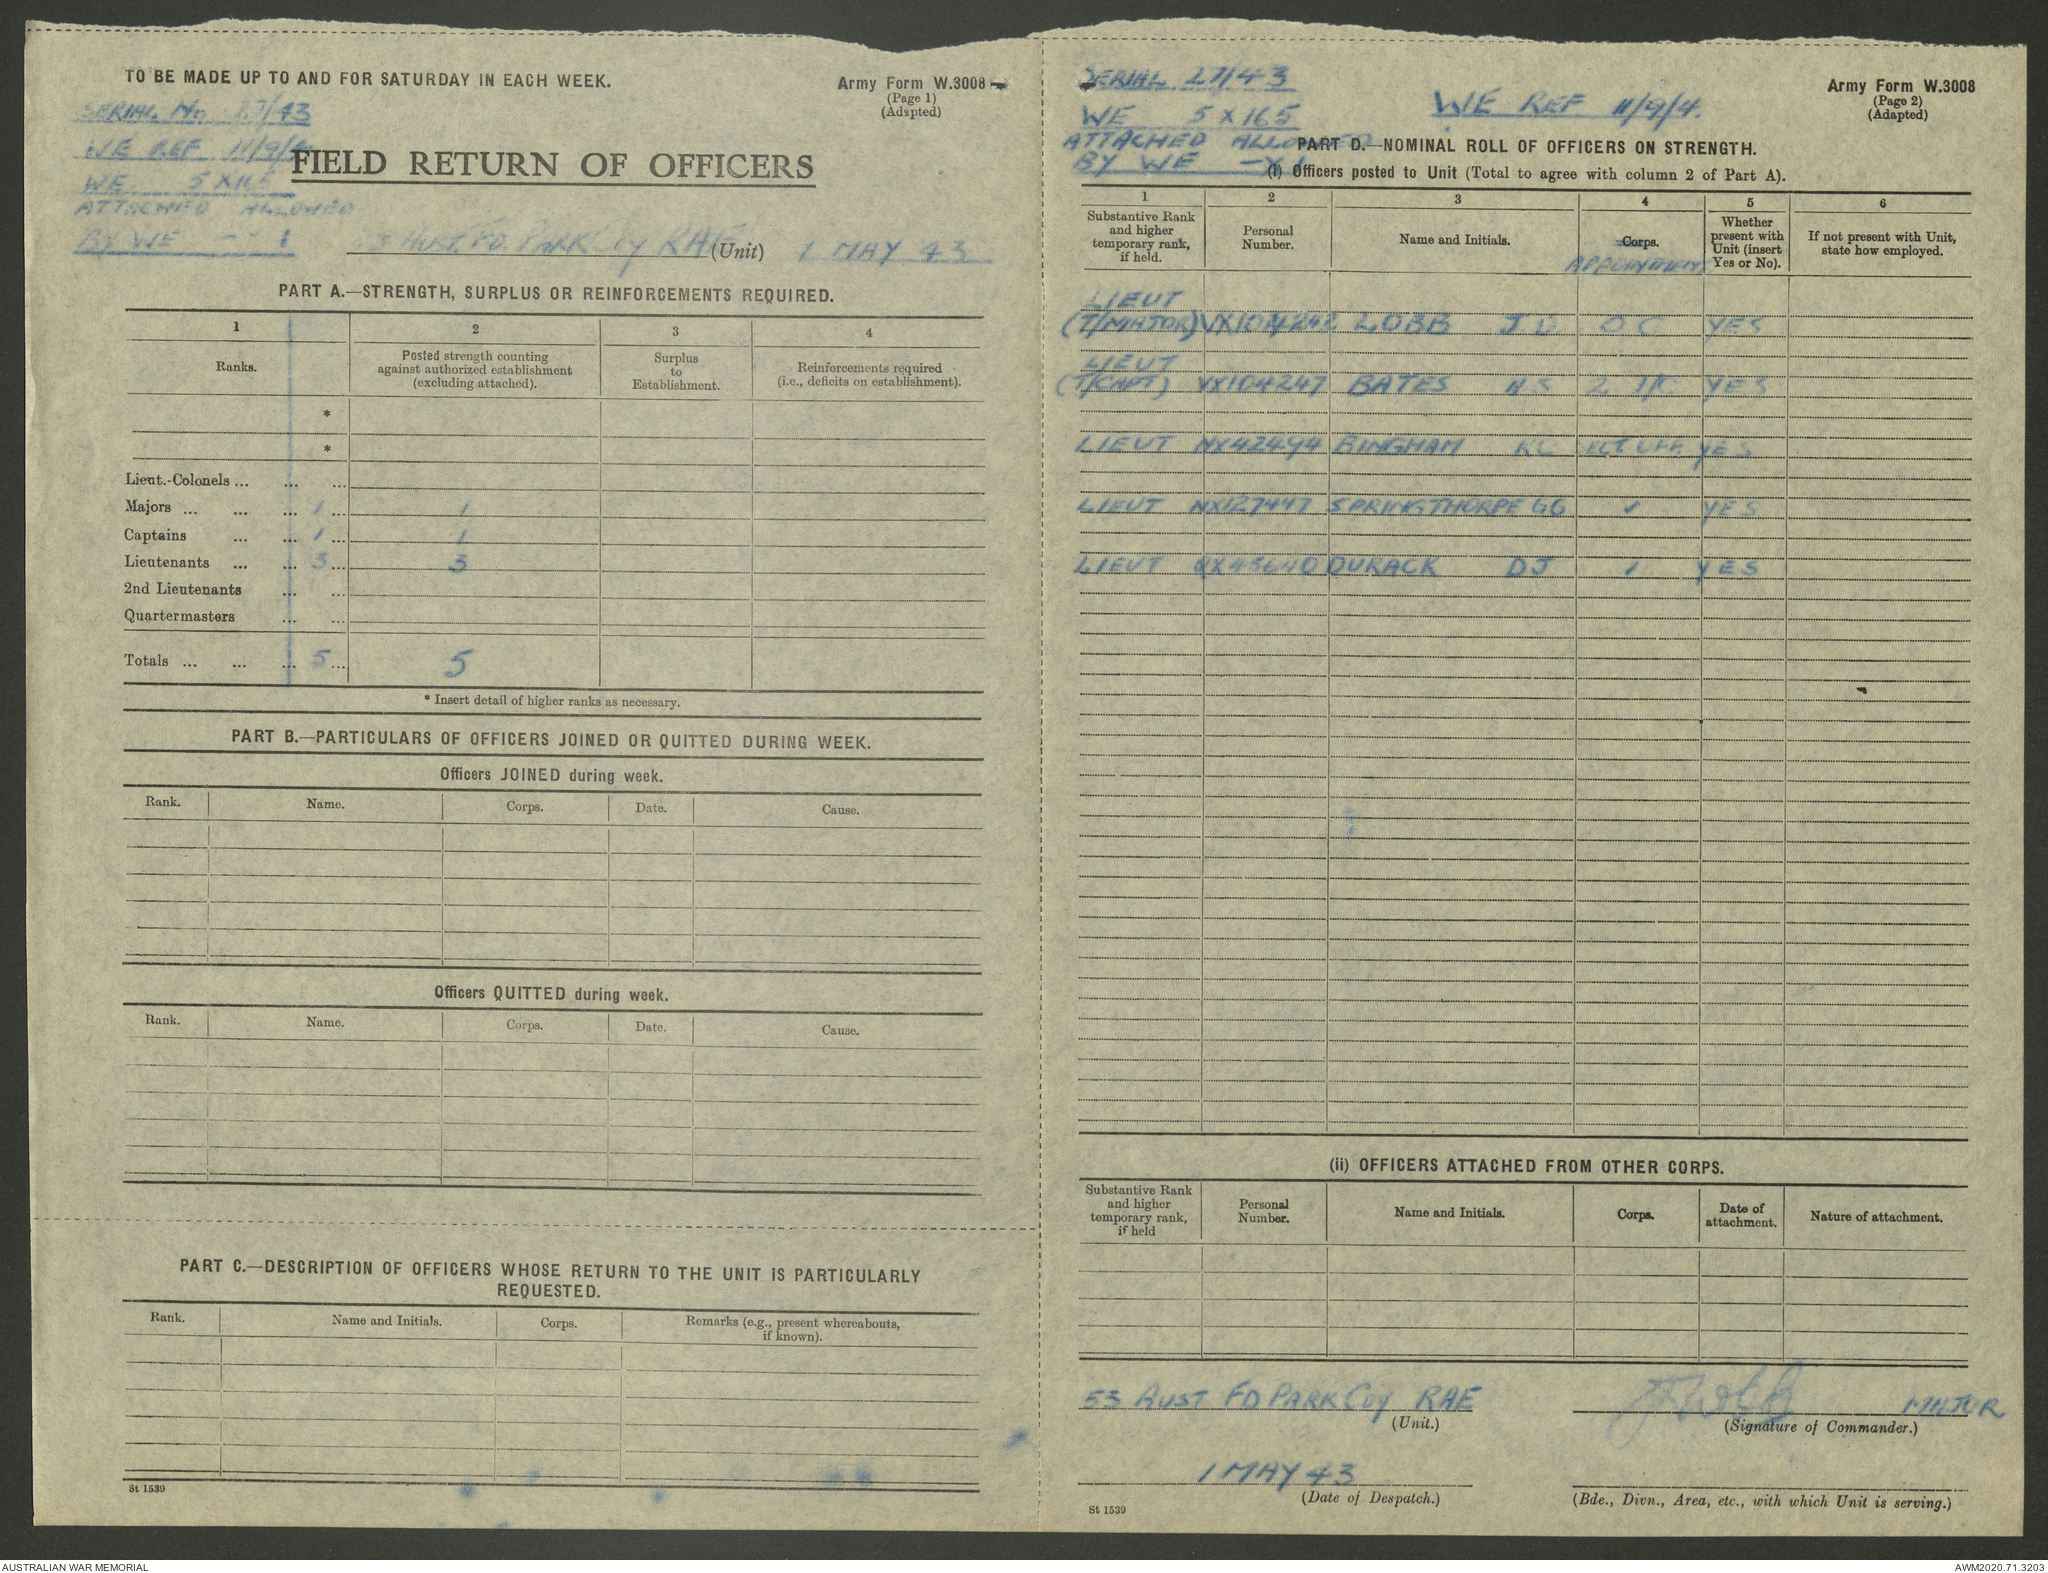 TO BE MADE UP TO AND FOR SATURDAY IN EACH WEEK.
Army Form W.3008
(Page 1)
(Adapted)
SERIAL No 27/43
WE REF 11/9/4
WE 5 X 165
ATTACHED ALLOWED
BY WE - - 1
FIELD RETURN OF OFFICERS
53 AUST. FD. PARK Coy RAE (Unit) 1 MAY 43
PART A.—STRENGTH, SURPLUS OR REINFORCEMENTS REQUIRED.
1 2 3 4
Ranks. Posted strength counting against authorized establishment (excluding attached). Surplus to Establishment. Reinforcements required (i.e., deficits on establishment).
*
*
Lieut.-Colonels ... ... ...
Majors ... ... ... 1 ... 1
Captains ... ... 1 ... 1
Lieutenants ... ... 3 ... 3
2nd Lieutenants ... ...
Quartermasters ... ...
Totals ... ... ... 5 ... 5
* Insert detail of higher ranks as necessary.
PART B.—PARTICULARS OF OFFICERS JOINED OR QUITTED DURING WEEK.
Officers JOINED during week.
Rank. Name. Corps. Date. Cause.
Officers QUITTED during week.
Rank. Name. Corps. Date. Cause.
PART C.—DESCRIPTION OF OFFICERS WHOSE RETURN TO THE UNIT IS PARTICULARLY
REQUESTED.
Rank. Name and Initials. Corps. Remarks (e.g., present whereabouts, if known).
St 1539
SERIAL 27/43
WE 5 X 165
ATTACHED ALLOWED
BY WE - X 1
WE REF 11/9/4.
Army Form W.3008
(Page 2)
(Adapted)
PART D.—NOMINAL ROLL OF OFFICERS ON STRENGTH.
(i) Officers posted to Unit (Total to agree with column 2 of Part A).
1 2 3 4 5 6
Substantive Rank and higher temporary rank, if held. Personal Number. Name and Initials. Corps. APPOINTMENT Whether present with Unit (insert Yes or No). If not present with Unit, state how employed.
LIEUT
(T/MAJOR) VX104242 LOBB J O C YES
LIEUT
(T/CAPT) VX104247 BATES N S 2 I/C YES
LIEUT NX42494 BINGHAM KC SECT OFF. YES
LIEUT NX127447 SPRINGTHORPE GG YES
LIEUT QX45640 DURACK DJ YES
(ii) OFFICERS ATTACHED FROM OTHER CORPS.
Substantive Rank and higher temporary rank, if held Personal Number. Name and Initials. Corps. Date of attachment. Nature of attachment.
53 AUST FD PARK Coy RAE
(Unit.)
MAJOR
(Signature of Commander.)
1 MAY 43
(Date of Despatch.)
(Bde., Divn., Area, etc., with which Unit is serving.)
St 1539
AUSTRALIAN WAR MEMORIAL
AWM2020.71.3203